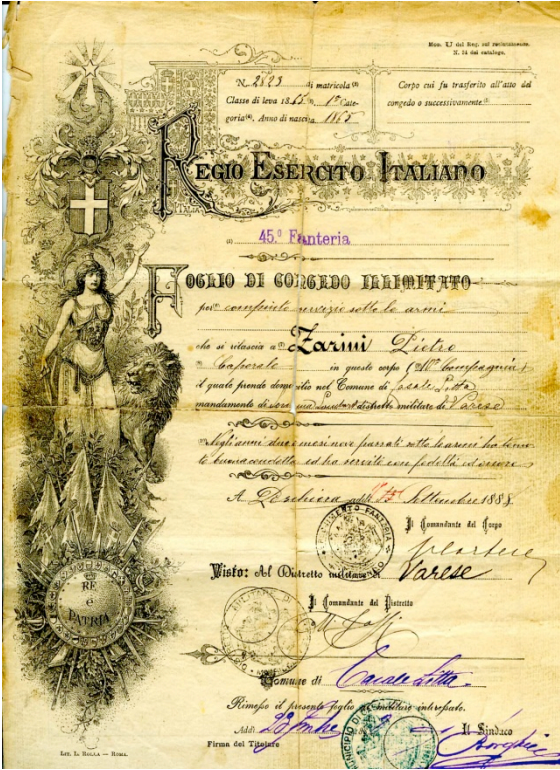 Mod. 
N. 21 del catalogo.
N. 2823 di matricola
Classe di leva 1865 1ª Cate-
goria, Anno di nascita 1865
Corpo cui fu trasferito all'atto del
congedo o successivamente
REGIO ESERCITO ITALIANO
45.º Fanteria
FOGLIO DI CONGEDO ILLIMITATO
per compiuto servizio sotto le armi
che si rilascia a Zarini Pietro
Caporale in questo corpo (10ª Compagnia)
il quale prende domicilio nel Comune di Casale Litta
mandamento di distretto militare di Varese
Negli anni due e mesi nove passati sotto le armi ha tenu
to buona condotta ed ha servito con fedeltà ed onore
A Peschiera addì 15 Settembre 1888
Il Comandante del Corpo
Visto: Al Distretto militare di Varese
Il Comandante del Distretto
Comune di Casale Litta
Rimesso il presente foglio al militare interessato.
Addì
Il Sindaco
Firma del Titolare
RE
e
PATRIA
LIT. L. ROLLA — ROMA.